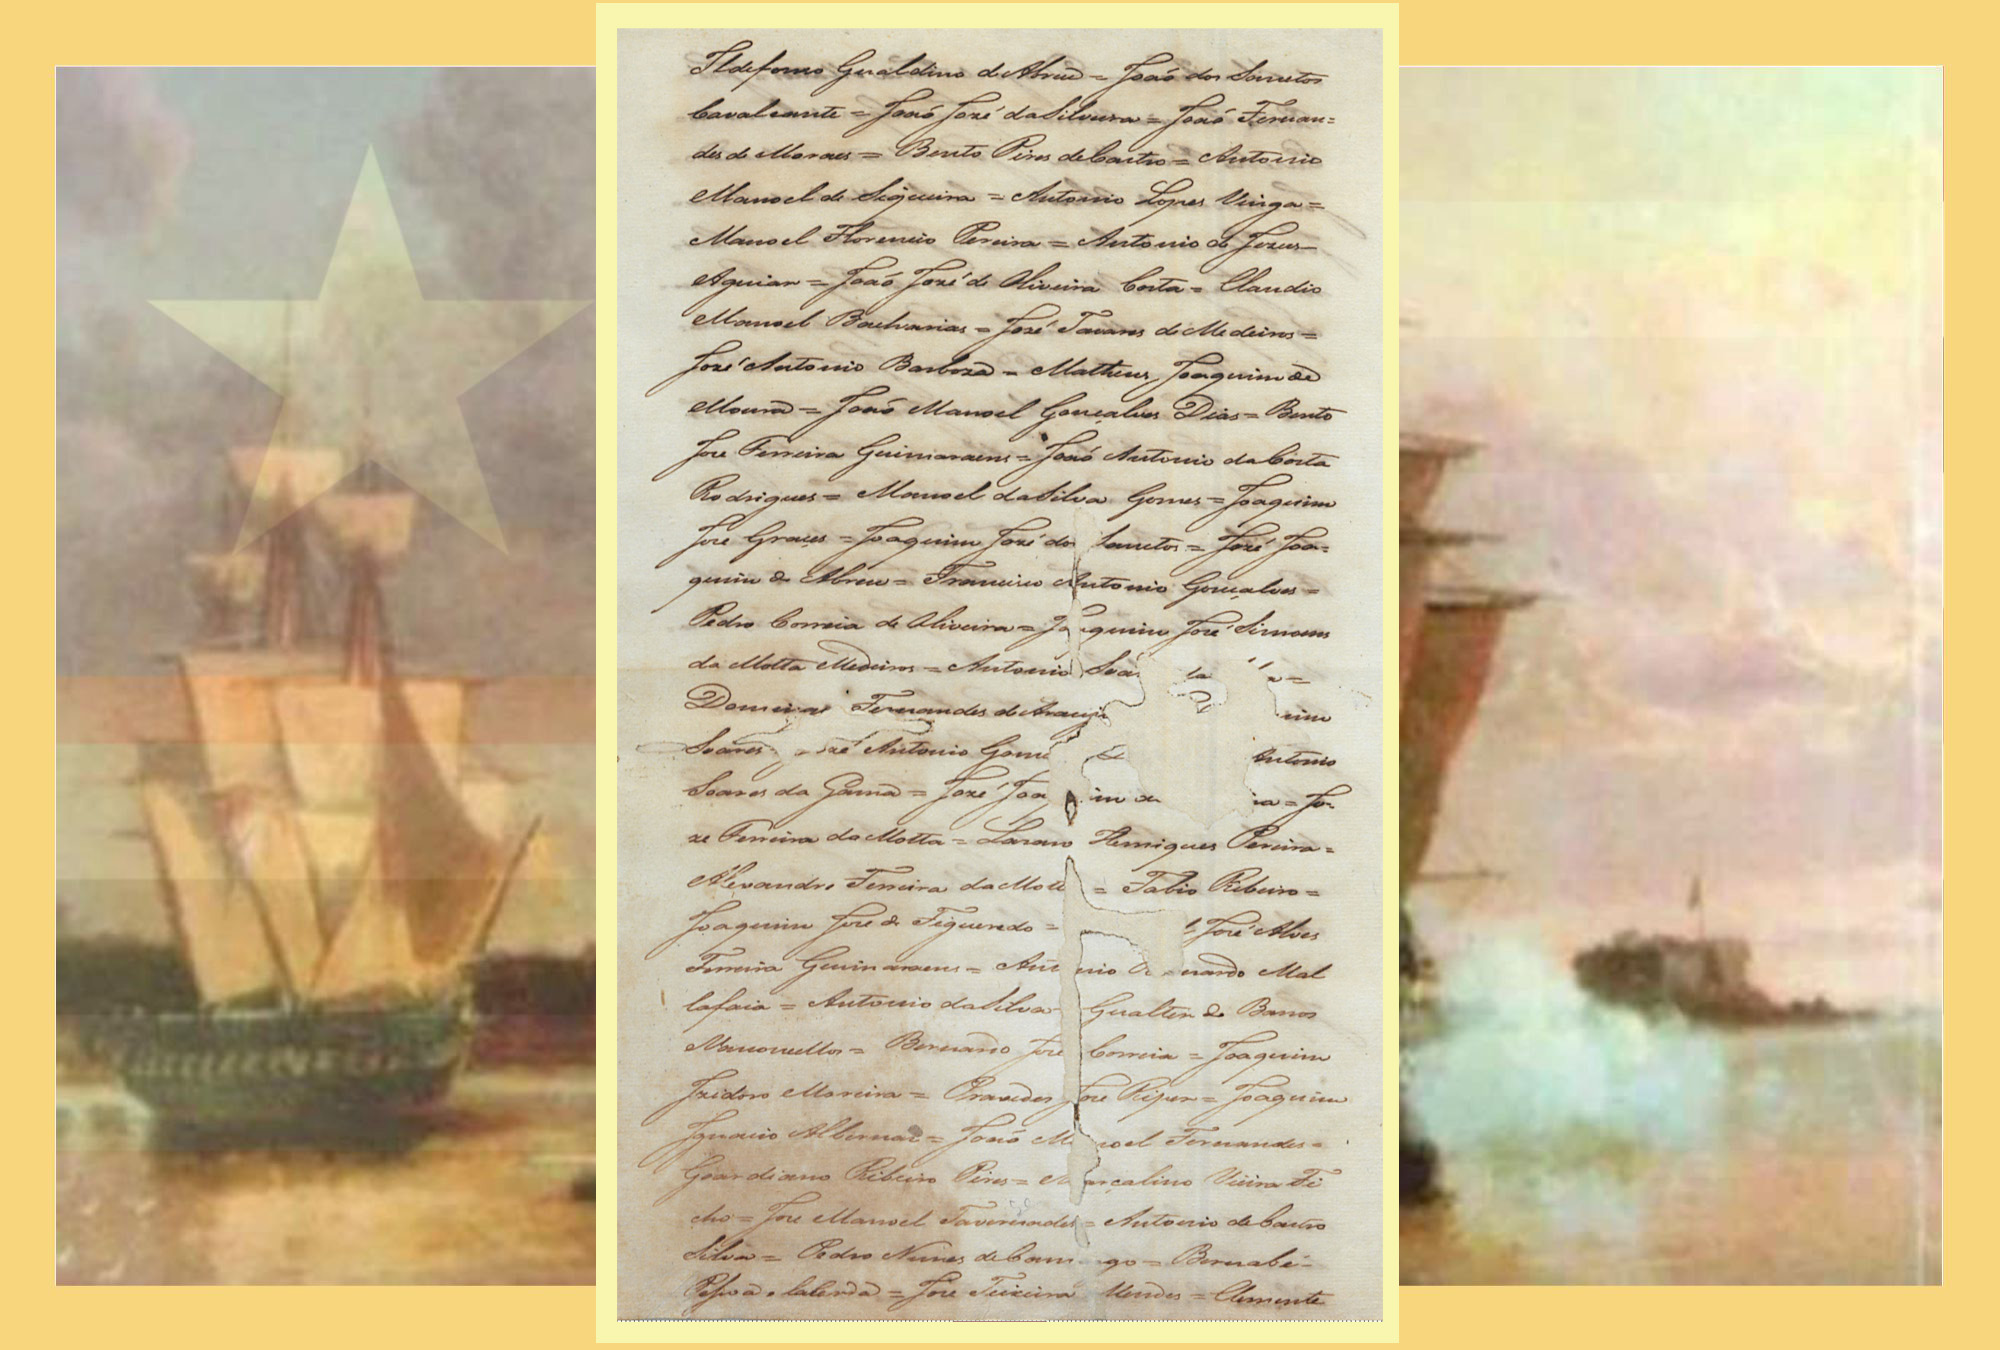 Ildefonso Gualdino de Abreu = João dos Sanctos
Cavalcante = João José da Silveira = João Fernan=
des de Moraes = Bento Pires de Castro = Antonio
Manoel de Siqueira = Antonio Lopes Viega =
Manoel Florencio Pereira = Antonio de Jezus
Aguiar = João José de Oliveira Costa = Claudio
Manoel = José Tavares de Medeiros =
José Antonio Barboza = Matheus Joaquim de
Moura = João Manoel Gonçalves Dias = Bento
Jose Ferreira Guimaraens = João Antonio da Costa
Rodrigues = Manoel da Silva Gomes = Joaquim
Jose Graces = Joaquim José do Sanctos = José Joa=
quim de Abreu = Francisco Antonio Gonçalves =
Pedro Correia de Oliveira = José Simoens
da Motta Medeiros = Antonio
Fernandes de Araujo
Soares Antonio Antonio
Soares da Gama = José = Jo
ze Ferreira da Motta = Lazaro Henriques Pereira =
Alexandre Ferreira da = Fabio Ribeiro =
Joaquim Jose de Figueredo = José Alves
Ferreira Guimaraens = Mal
lafaia = Antonio da Silva Gualter de Barros
= Bernardo Jose Correia = Joaquim
Izidoro Moreira = Praxedes Jose = Joaquim
Ignacio Albernaz = João Fernandes =
Goardiano Ribeiro Pires = Marçalino Vieira Fi
cho = Jose Manoel = Antonio de Castro
Silva = Pedro Nunes de = Bernabé
= Jose Teixeira Mendes = Clemente